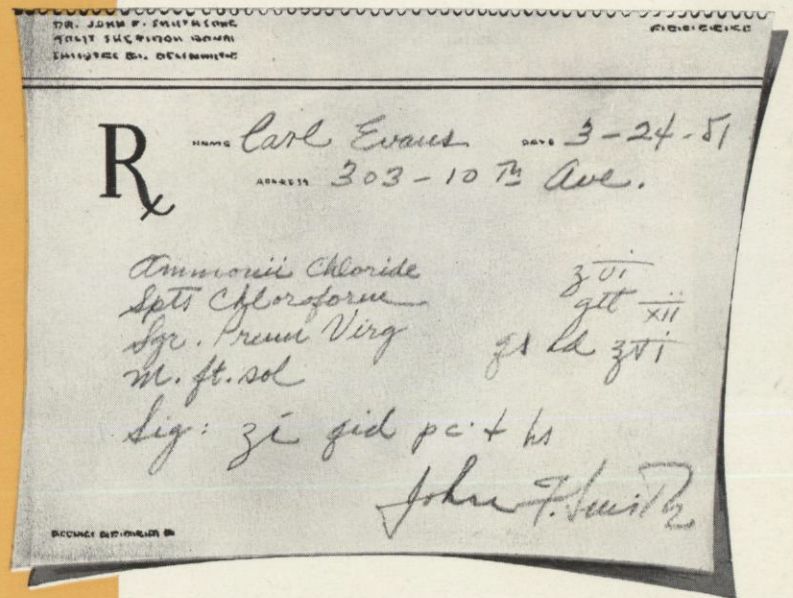 DR. JOHN F.
R
NAME Carl Evans DATE 3-24-51
ADDRESS 303-10 Th Ave.
Ammonii Chloride ʒvi
Spts Chloroform gtt xii
Syr. Prun Virg qs ad ℥vi
M. ft. sol
Sig: ʒi qid pc + hs
John F. Smith